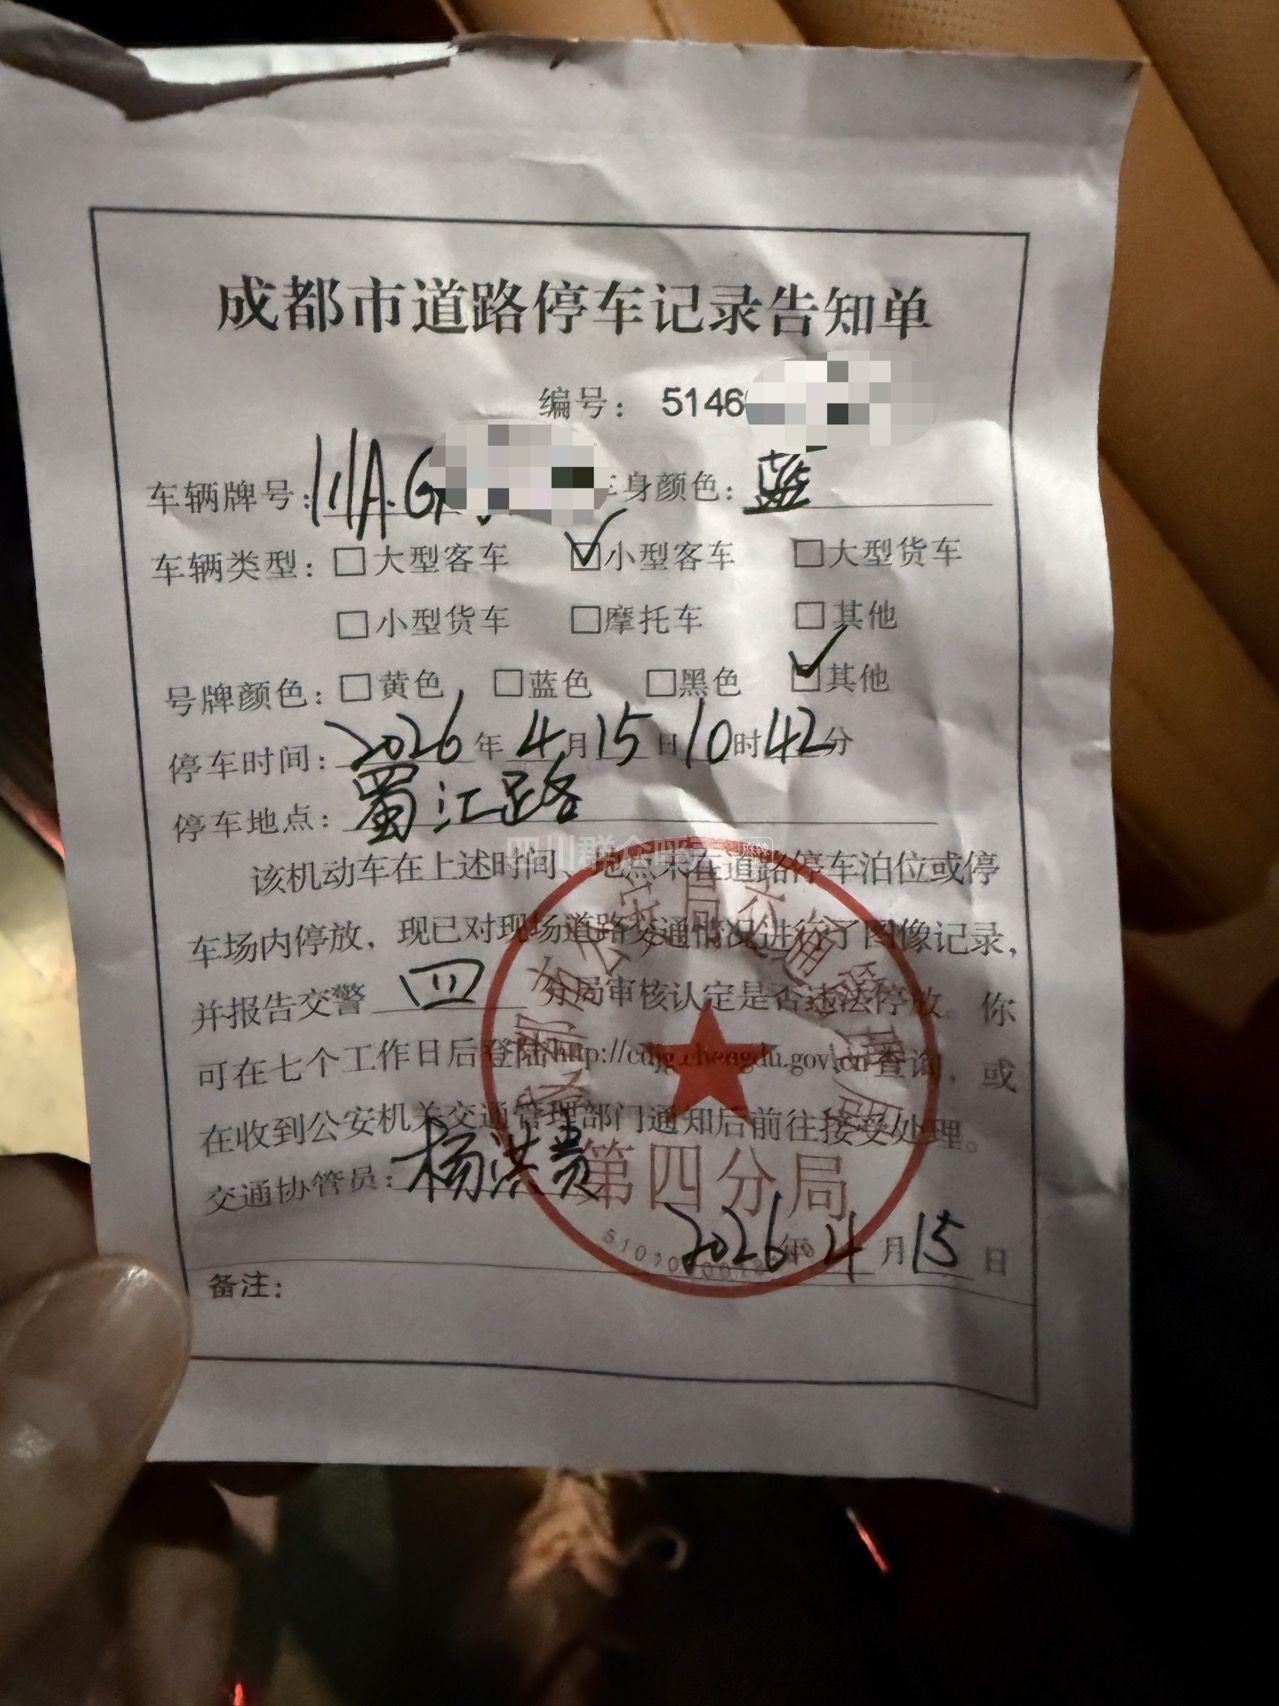 成都市道路停车记录告知单
编号： 5146
车辆牌号：川A·G 车身颜色：蓝
车辆类型：□大型客车 ☑小型客车 □大型货车
□小型货车 □摩托车 □其他
号牌颜色：□黄色 □蓝色 □黑色 ☑其他
停车时间：2026年4月15日10时42分
停车地点：蜀江路
四川群众呼
该机动车在上述时间、地点未在道路停车泊位或停
车场内停放，现已对现场道路交通情况进行了图像记录，
并报告交警 四 分局审核认定是否违法停放。你
可在七个工作日后登陆http://cdjg.chengdu.gov.cn查询，或
在收到公安机关交通管理部门通知后前往接受处理。
交通协管员：杨洪贵
成都市公安局交通管理局
第四分局
2026年4月15日
备注：